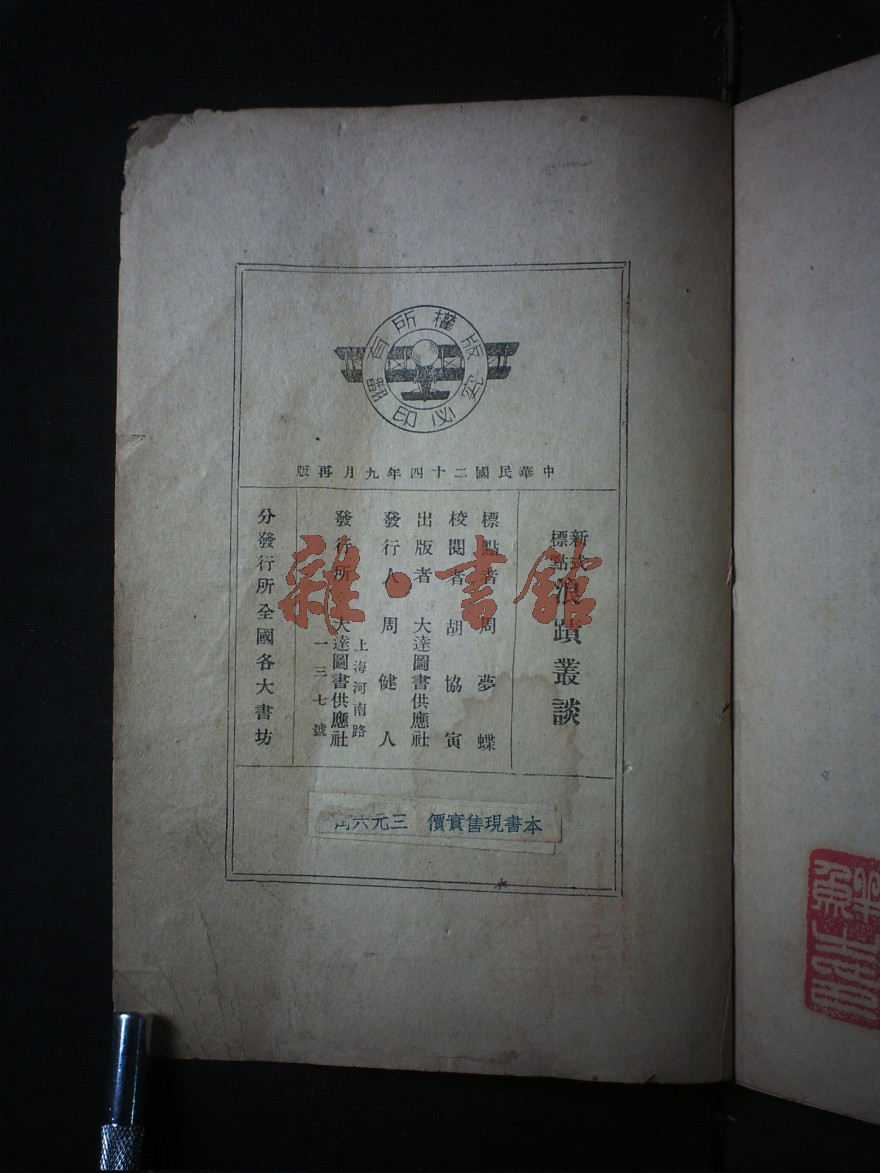 版權所有
翻印必究
中華民國二十四年九月再版
新式標點 浪蹟叢談
標點者 周夢蝶
校閱者 胡協寅
出版者 大達圖書供應社
發行人 周健人
上海河南路
發行所 大達圖書供應社
一三七號
分發行所全國各大書坊
本書現售實價 三元六
雜·書館